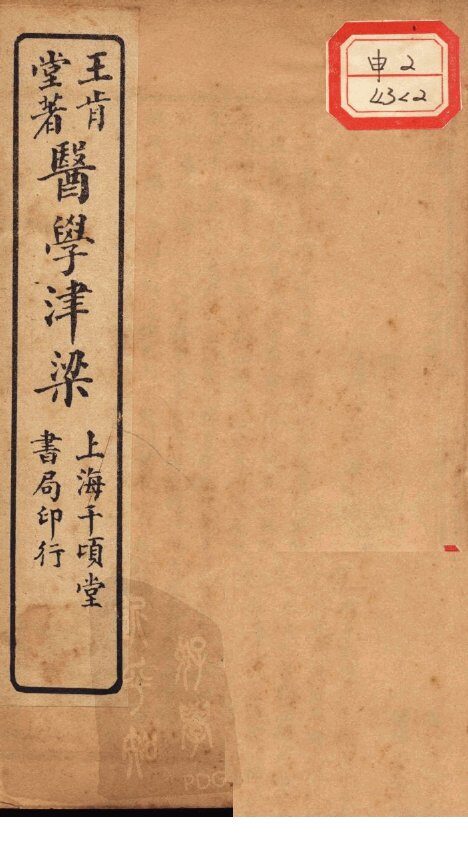 王肯
堂著
醫學津梁
上海千頃堂
書局印行
申2
PDG